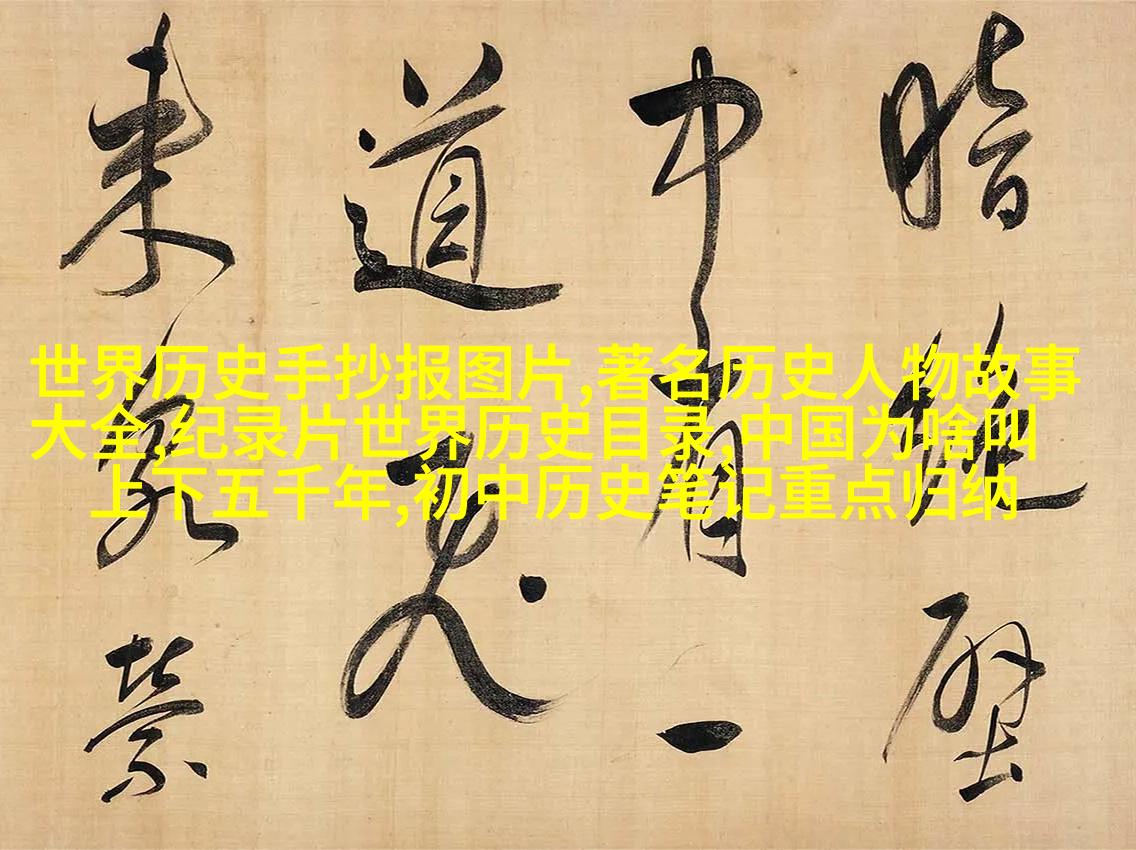 世界历史手抄报图片,著名历史人物故事
大全,纪录片世界历史目录,中国为啥叫
上下五千年,初中历史笔记重点归纳
暗壁
中有一
道
来